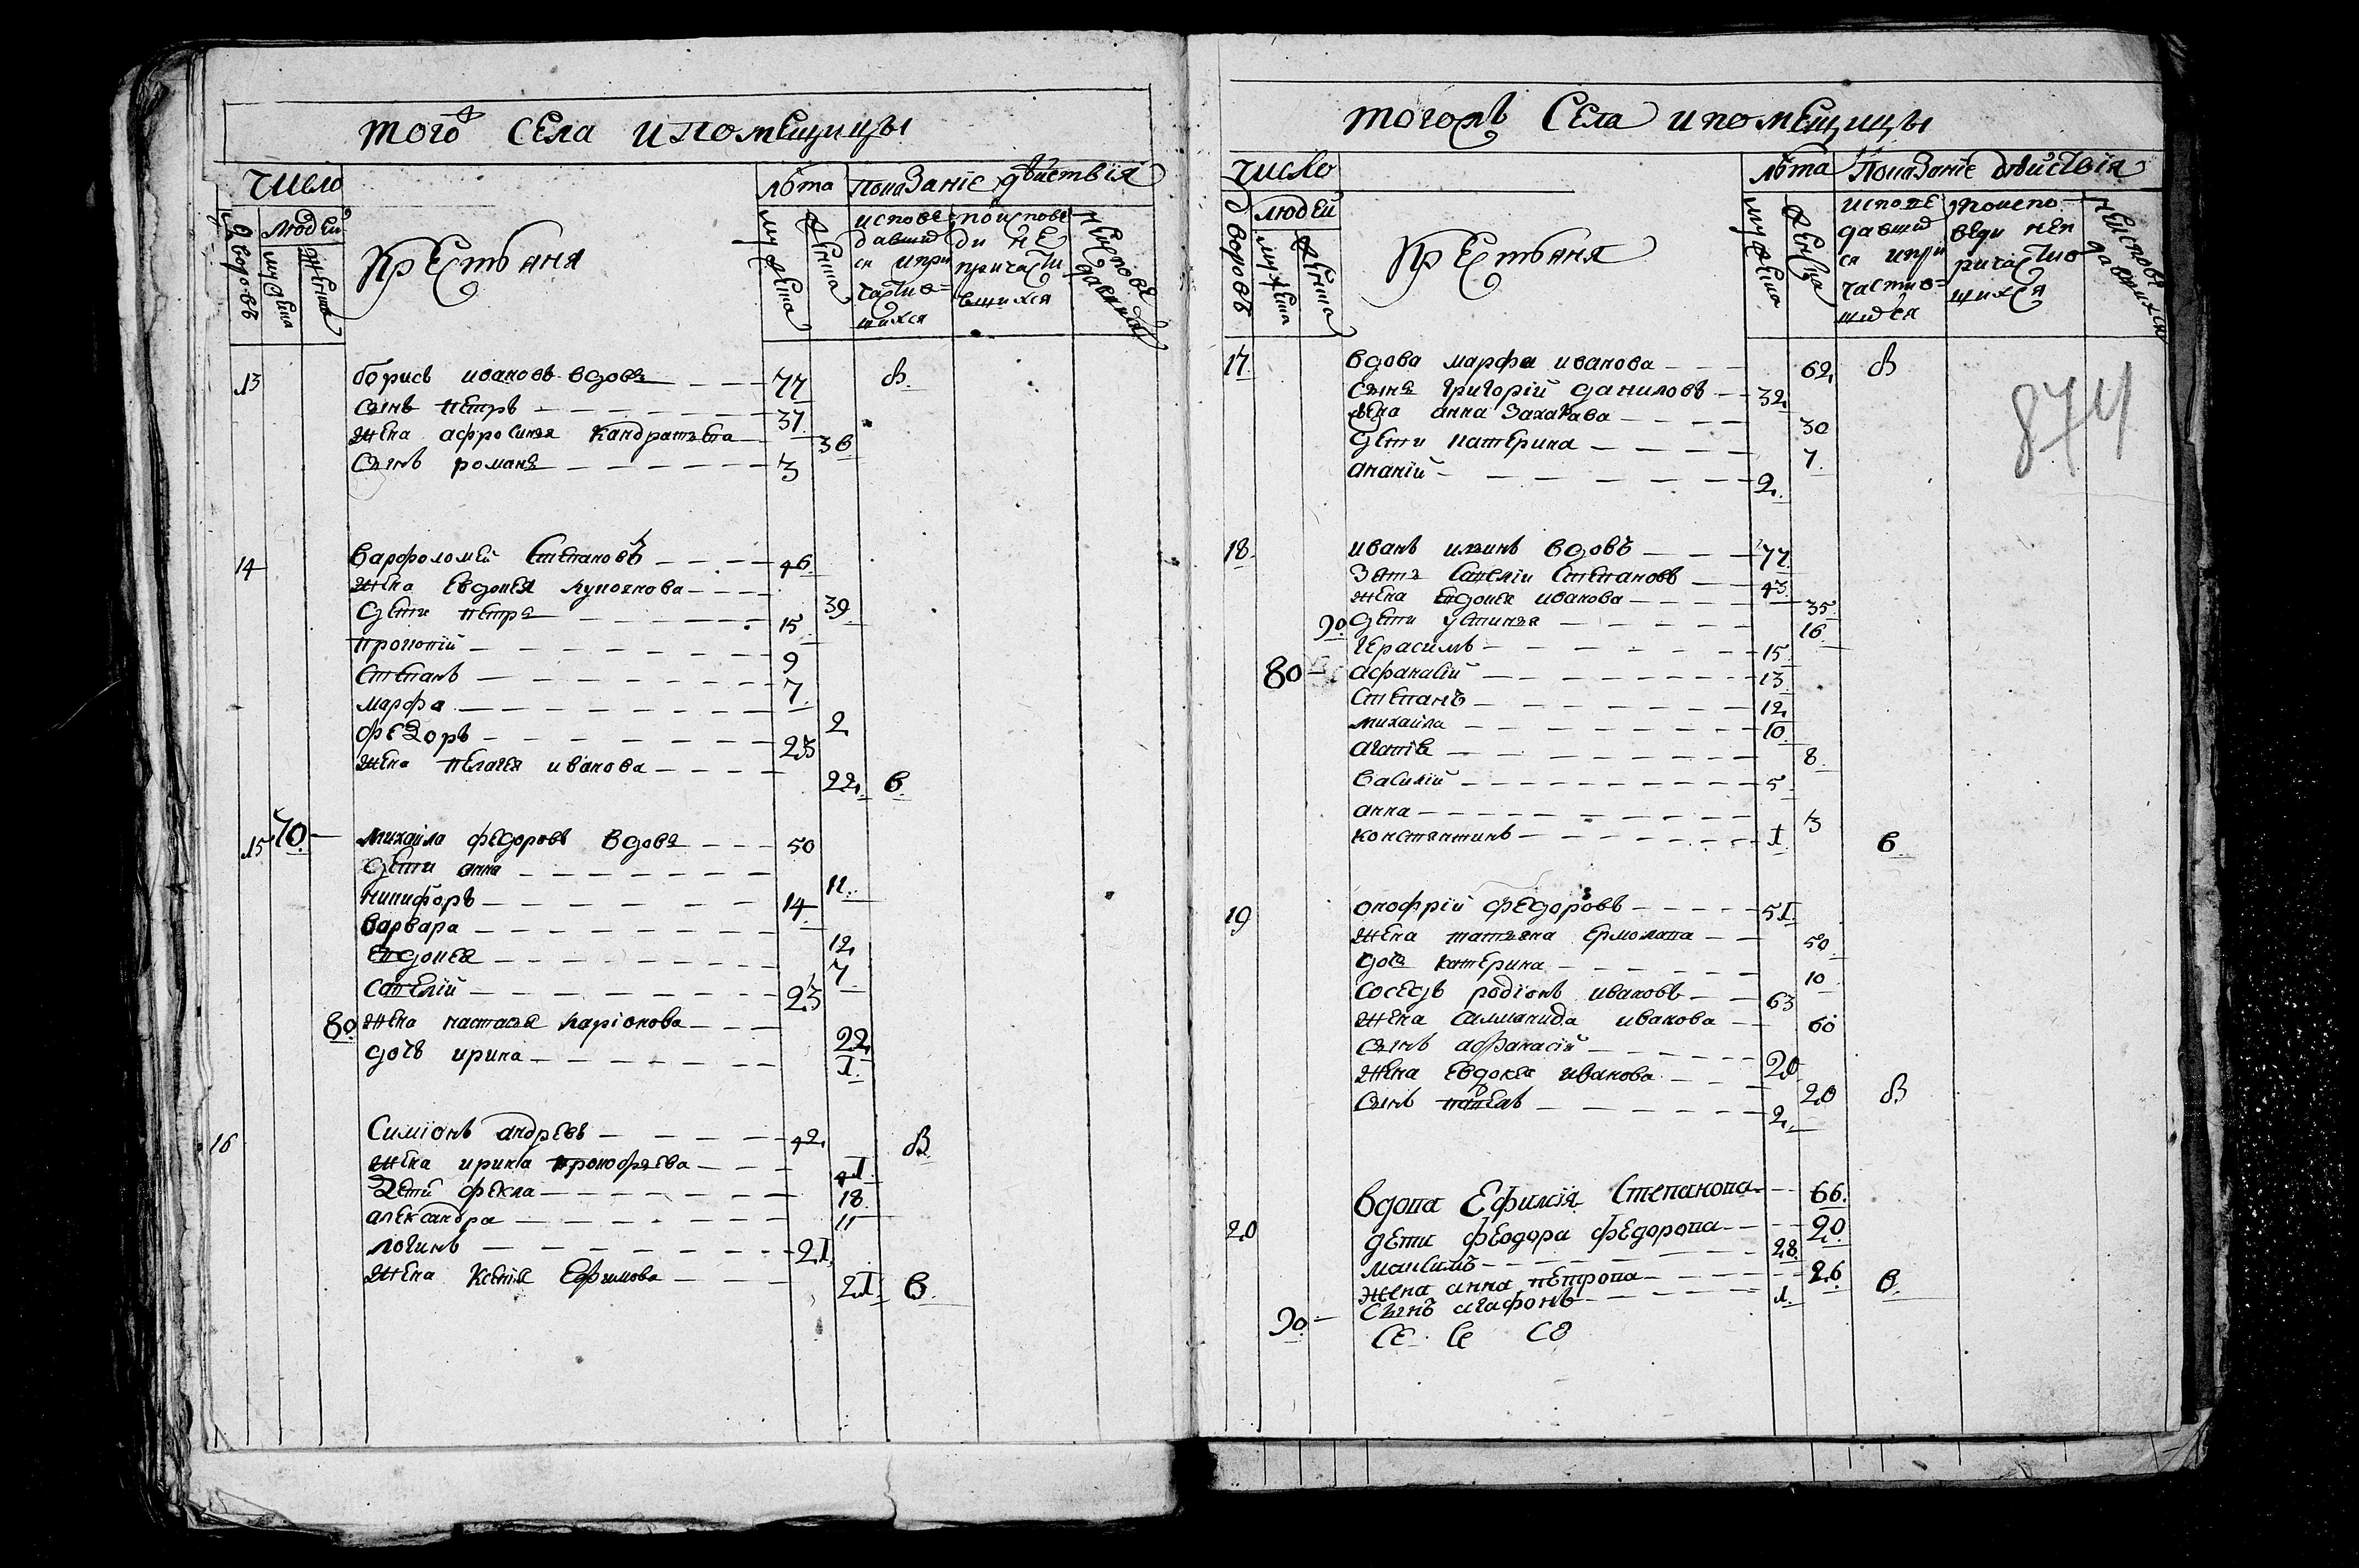 того ж села и помещицы
число
лѣта показаніе действія
дворовъ
людей
мужеска
женска
крестьяня
мужеска
женска
исповедавшихся и причастившихся
по исповеди не причастившихся
неисповедавшихся
13 борисъ ивановъ вдовъ 77 в
сынъ петръ 37
жена афросинья кандратьева 36
сынъ романъ 3
14 варфоломей степановъ 46
жена евдокея лукоянова 39
дети петръ 15
прокопий 9
степанъ 7
марфа 2
федоръ 23
жена пелагея иванова 22 в
15 70 михайла федоровъ вдовъ 50
дети анна 11
никифоръ 14
варвара 12
евдокея 7
савелий 23
80 жена настасья ларіонова 22
дочь ирина 1
16 симіонъ андревъ 42 в
жена ирина прокофьева 41
дети фекла 18
александра 11
логинъ 21
жена ксенія ефимова 21 в
тогожъ села и помещицы
число
лѣта показаніе действія
дворовъ
людей
мужеска
женска
крестьяня
мужеска
женска
исповедавшихся и причастившихся
по исповеди не причастившихся
неисповедавшихся
17 вдова марфа иванова 62 в
874
сынъ григорій даниловъ 32
жена анна захарава 30
дети катерина 7
ананий 2
18 иванъ ильинъ вдовъ 77
зять савелии степановъ 43
жена евдокея иванова 35
90 дети устинья 16
герасимъ 15
80 афанасий 13
степанъ 12
михаила 10
агапія 8
василий 5
анна 3
констянтинъ 1 в
19 онофрій федоровъ 51
жена татьяна ермолава 50
дочь катерина 10
соседъ родіонъ ивановъ 63
жена саламанида иванова 60
сынъ афанасій 20
жена евдокея иванова 20 в
сынъ павелъ 2
вдова ефимія степанова 66
20 дети феодора федорова 20
максимъ 28
жена анна петрова 26 в
90 сынъ агафонъ 1
се се со